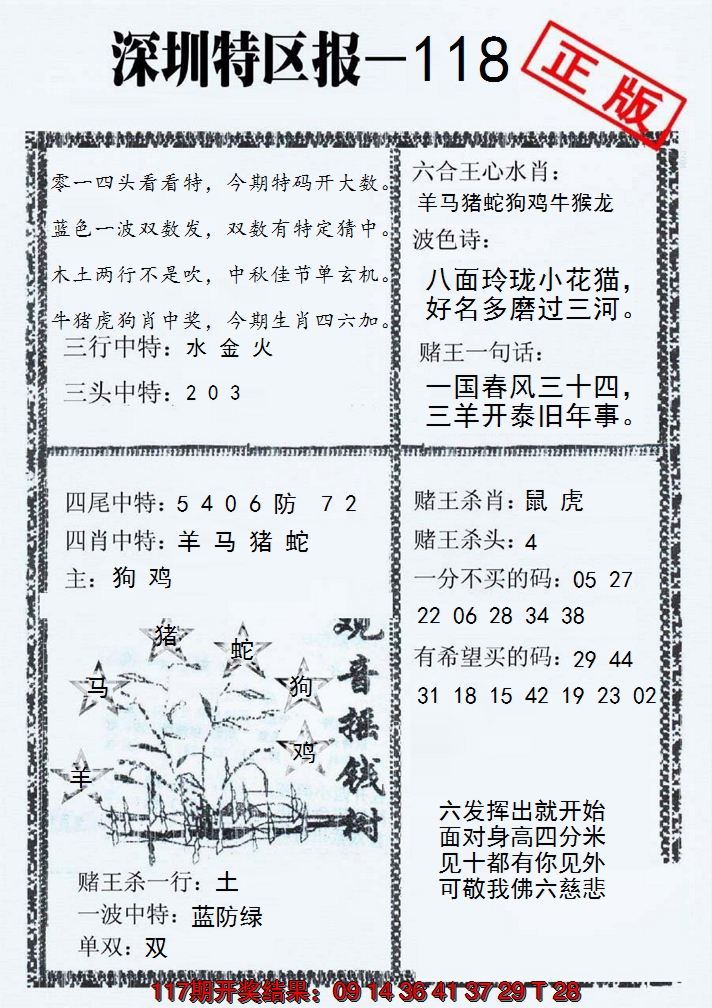 深圳特区报—118
正版
零一四头看看特，今期特码开大数。
蓝色一波双数发，双数有特定猜中。
木土两行不是吹，中秋佳节单玄机。
牛猪虎狗肖中奖，今期生肖四六加。
三行中特：水 金 火
三头中特：2 0 3
六合王心水肖：
羊马猪蛇狗鸡牛猴龙
波色诗：
八面玲珑小花猫，
好名多磨过三河。
赌王一句话：
一国春风三十四，
三羊开泰旧年事。
四尾中特：5 4 0 6 防 7 2
四肖中特：羊 马 猪 蛇
主：狗 鸡
观音摇钱树
猪
蛇
马
狗
鸡
羊
赌王杀一行：土
一波中特：蓝防绿
单双：双
赌王杀肖：鼠 虎
赌王杀头：4
一分不买的码：05 27
22 06 28 34 38
有希望买的码：29 44
31 18 15 42 19 23 02
六发挥出就开始
面对身高四分米
见十都有你见外
可敬我佛六慈悲
117期开奖结果：09 14 36 41 37 29 T 28